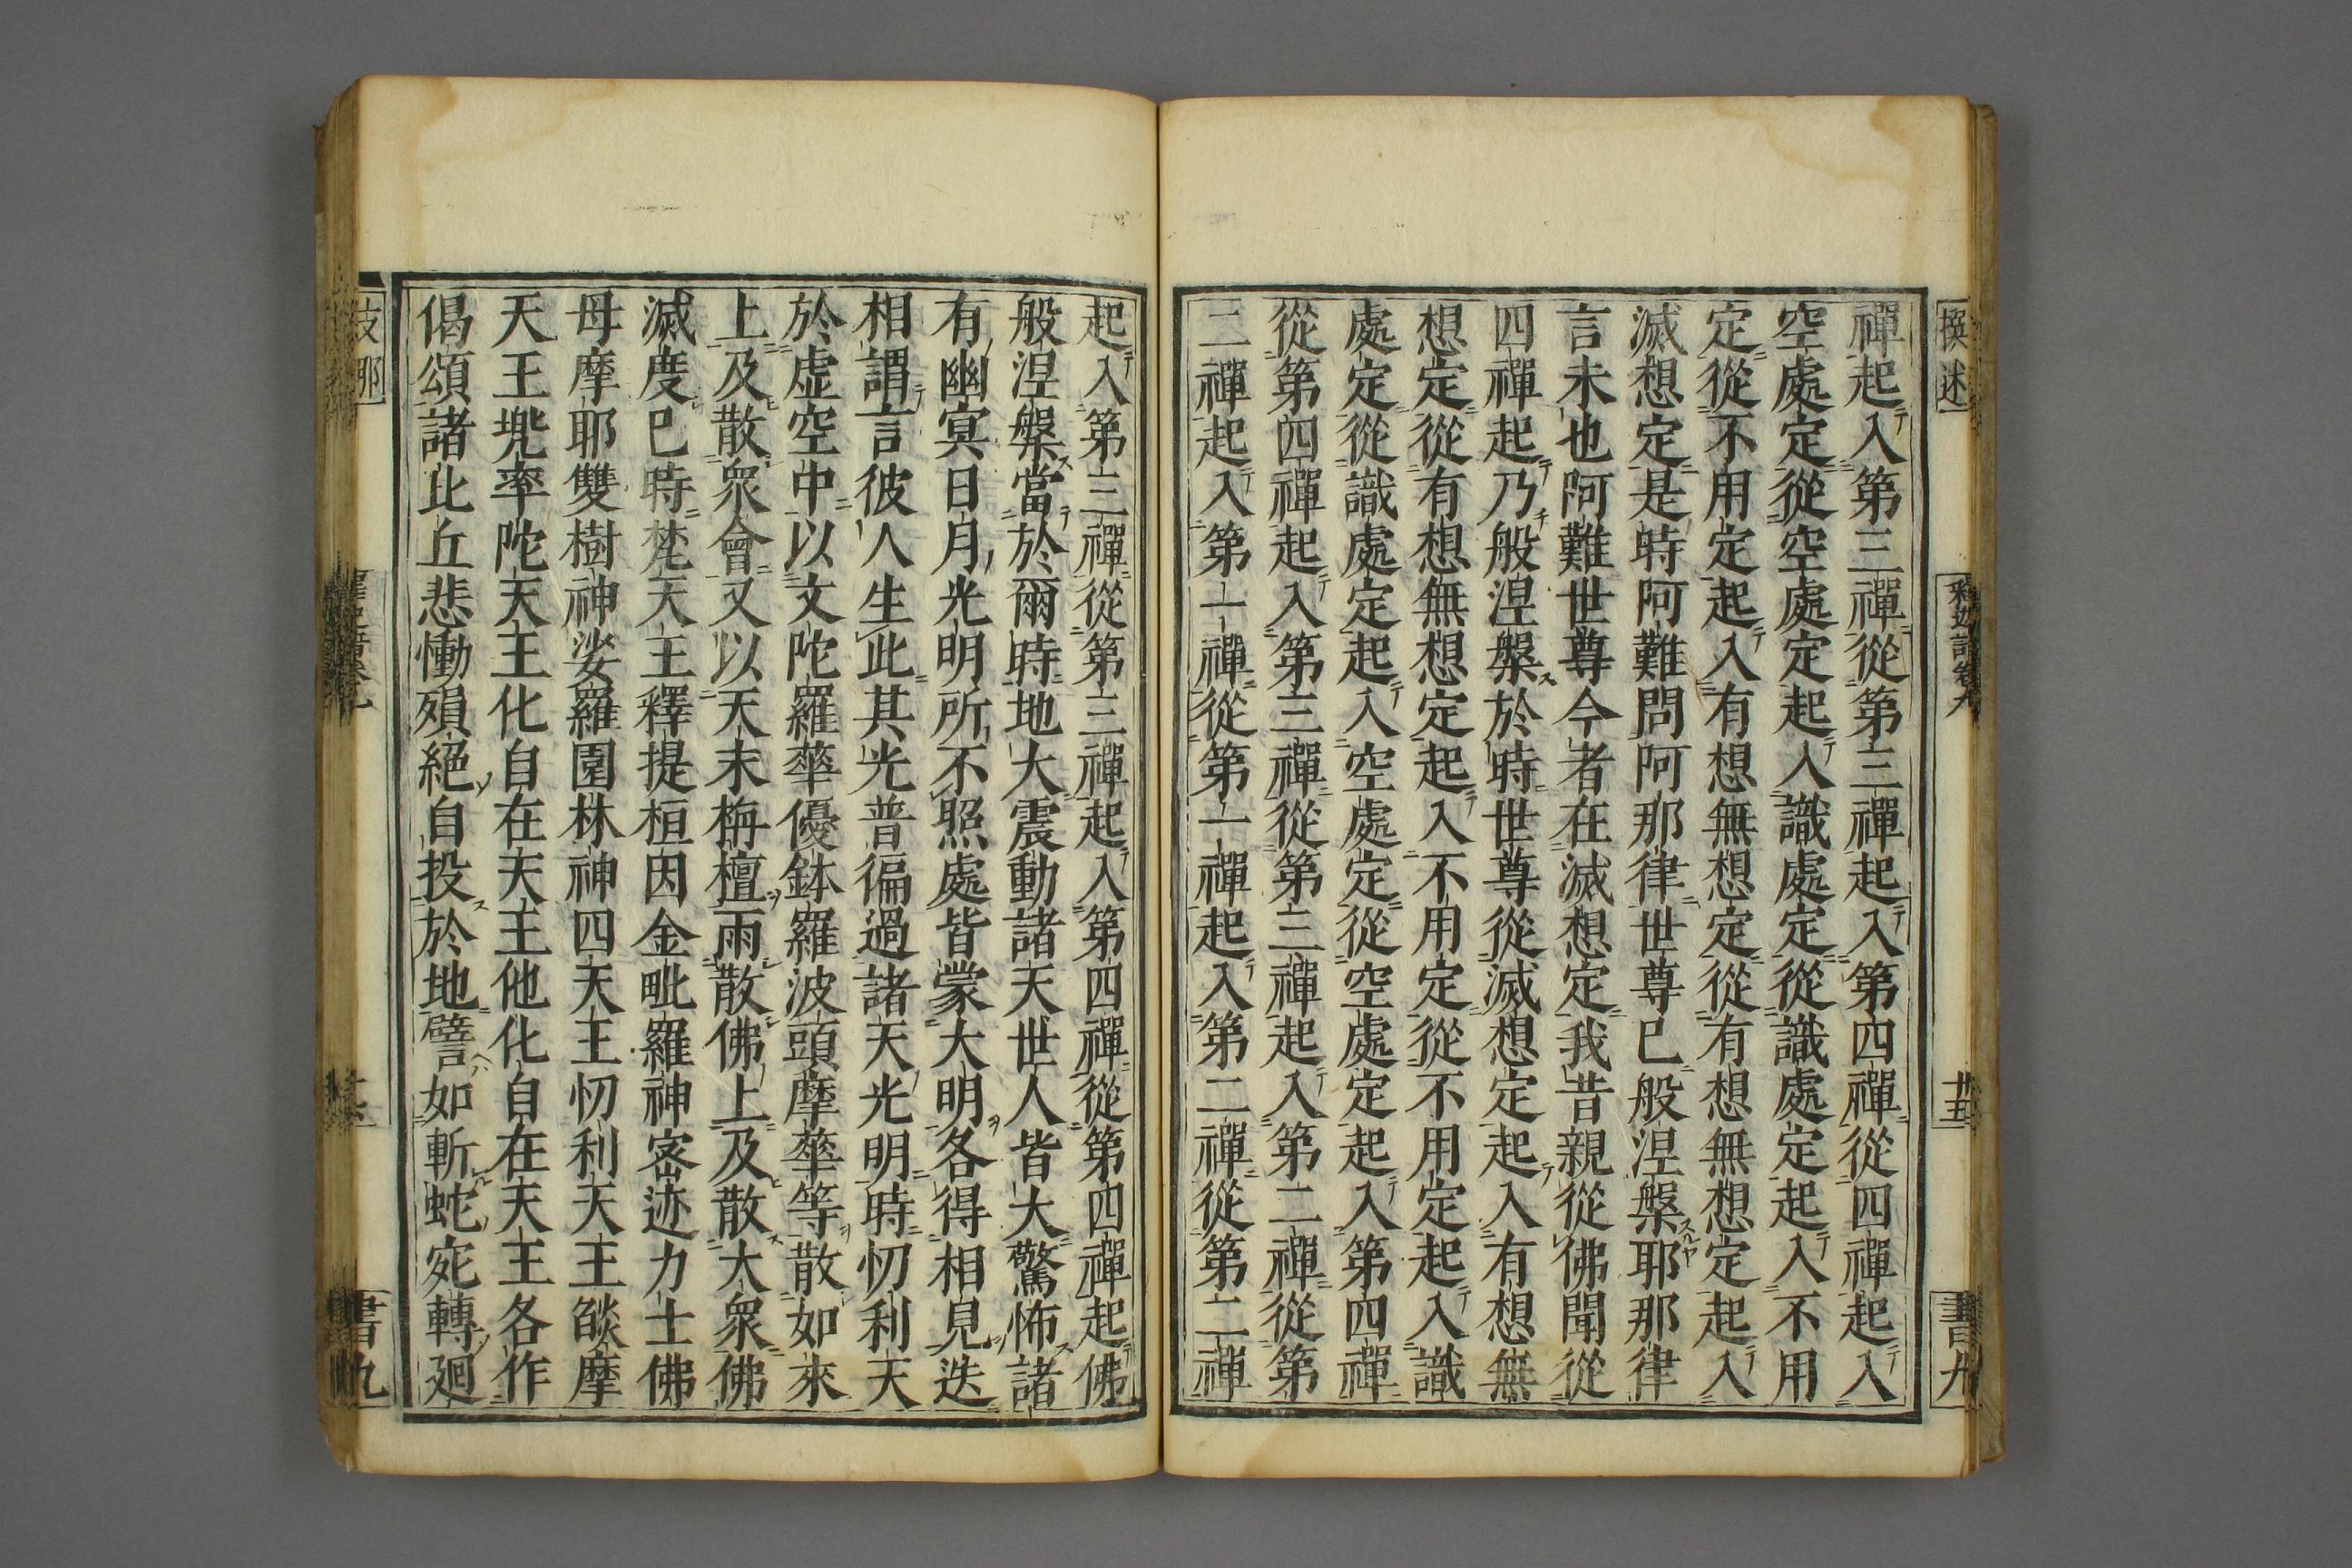 撰述
釈迦譜卷九
廿五
書九
禪起入第三禪從第三禪起入第四禪從四禪起入
空處定從空處定起入識處定從識處定起入不用
定從不用定起入有想無想定從有想無想定起入
滅想定是時阿難問阿那律世尊已般涅槃耶那律
言未也阿難世尊今者在滅想定我昔親從佛聞從
四禪起乃般涅槃於時世尊從滅想定起入有想無
想定從有想無想定起入不用定從不用定起入識
處定從識處定起入空處定從空處定起入第四禪
從第四禪起入第三禪從第三禪起入第二禪從第
二禪起入第一禪從第一禪起入第二禪從第二禪
起入第三禪從第三禪起入第四禪從第四禪起佛
般涅槃當於爾時地大震動諸天世人皆大驚怖諸
有幽冥日月光明所不照處皆蒙大明各得相見迭
相謂言彼人生此其光普徧過諸天光明時忉利天
於虛空中以文陀羅華優鉢羅波頭摩華等散如來
上及散衆會又以天末栴檀雨散佛上及散大衆佛
滅度已時梵天王釋提桓因金毗羅神密迹力士佛
母摩耶雙樹神娑羅園林神四天王忉利天王燄摩
天王兠率陀天王化自在天王他化自在天王各作
偈頌諸比丘悲慟殞絕自投於地譬如斬蛇宛轉廻
支那
書九